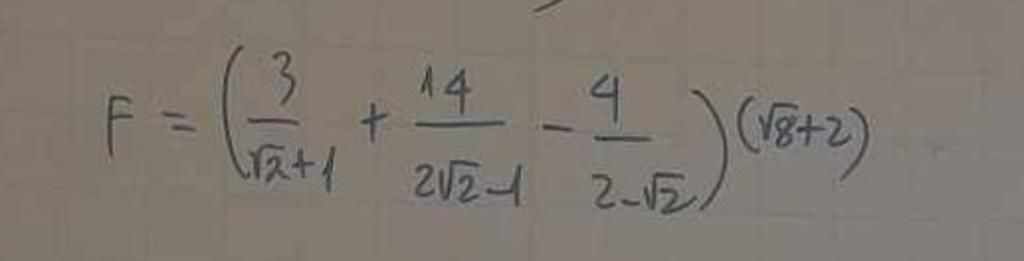 F = (3/(√2+1) + 14/(2√2-1) - 4/(2-√2))(√8+2)